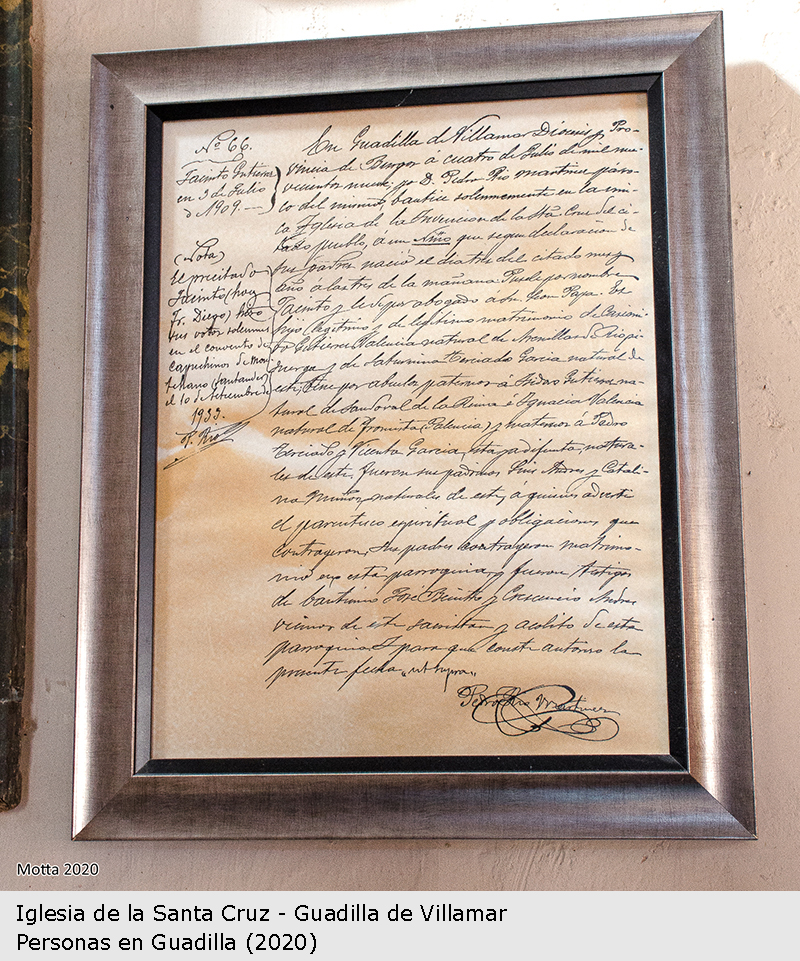 Nº 66.
Jacinto Gutierrez
en 3 de Julio
d 1909.
(Nota)
El precitado
Jacinto (hoy
Fr. Diego) hizo
sus votos solemnes
en el convento de
capuchinos de Mon
tehano (Santander)
el 10 de Setiembre de
1933.
P. Rio
En Guadilla de Villamar Diócesis y Pro-
vincia de Burgos a cuatro de Julio de mil no-
vecientos nueve, yo D. Pedro Rio Martinez párro-
co del mismo, bauticé solemnemente en la úni-
ca Iglesia de la Invencion de la Sta Cruz del ci-
tado pueblo, á un Niño que segun declaracion de
sus padres nació el dia tres del citado mes y
año a las tres de la mañana. Púsele por nombre
Jacinto y le dí por abogado a San Leon Papa. Es
hijo legítimo y de legítimo matrimonio de
Gutierrez Valencia natural de Arenillas de Riopi-
suerga y de Saturnina Terciado Garcia natural de
este; tiene por abuelos paternos a Isidro Gutierrez na-
tural de Sandoval de la Reina é Ignacia Valencia
natural de Fromista (Palencia) y maternos á Pedro
Terciado y Vicenta Garcia, esta ya difunta, natura-
les de este. Fueron sus padrinos Luis Andres y Catali-
na Muñoz, naturales de este, á quienes advertí
el parentesco espiritual y obligaciones que
contrageron. Sus padres contrageron matrimo-
nio en esta parroquia, y fueron testigos
de bautismo José Benito y Crescencio Andres
vecinos de este sacristan y acolito de esta
parroquia. Y para que conste autorizo la
presente fecha "ut supra"
Pedro Rio Martinez
Motta 2020
Iglesia de la Santa Cruz - Guadilla de Villamar
Personas en Guadilla (2020)